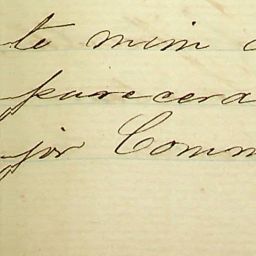 te mim
parecera
jor Comm